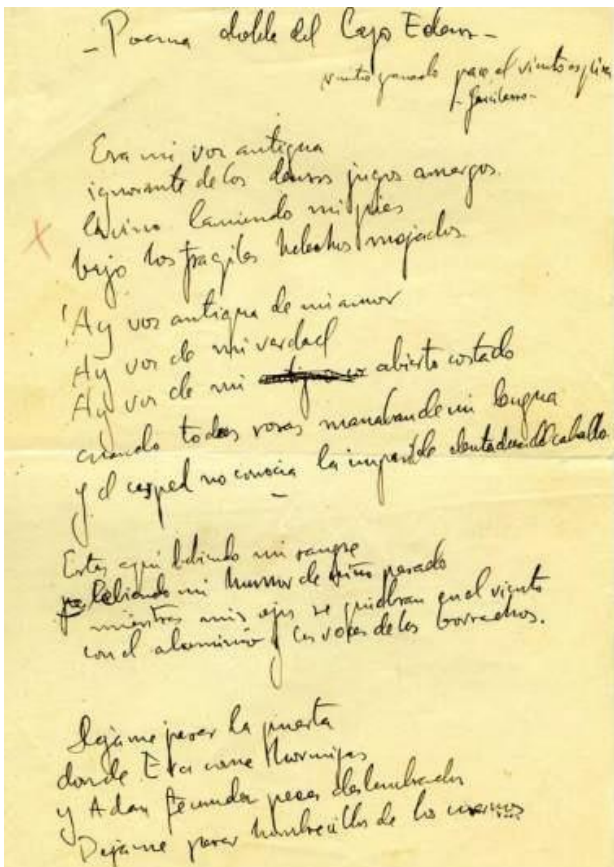 - Poema doble del Lago Edem -
nuestro ganado pace el viento espira
- Garcilaso -
Era mi voz antigua
ignorante de los densos jugos amargos.
lamiendo mis pies
bajo los fragiles helechos mojados.
¡Ay voz antigua de mi amor
Ay voz de mi verdad
Ay voz de mi abierto costado
cuando todas rosas manaban de mi lengua
y el cesped no conocia la impasible dentadura del caballo.
Estas aqui bebiendo mi sangre
bebiendo mi humor de niño pasado
mientras mis ojos se quiebran en el viento
con el aluminio y las voces de los borrachos.
Dejame pasar la puerta
donde Eva come hormigas
y Adan fecunda peces deslumbrados
Dejame pasar hombrecillo de los cuernos